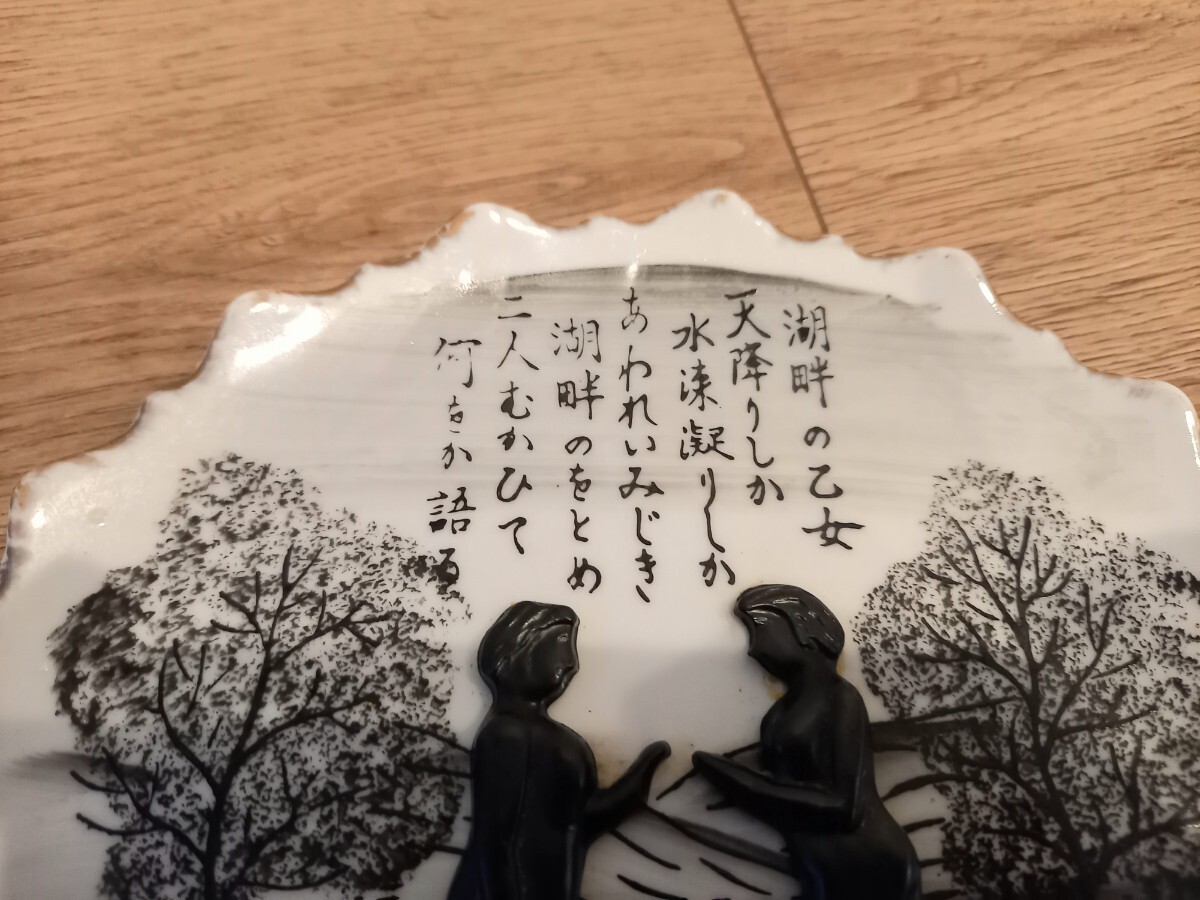 湖畔の乙女
天降りしか
水凍凝りしか
あわれいみじき
湖畔のをとめ
二人むかひて
何をか語る